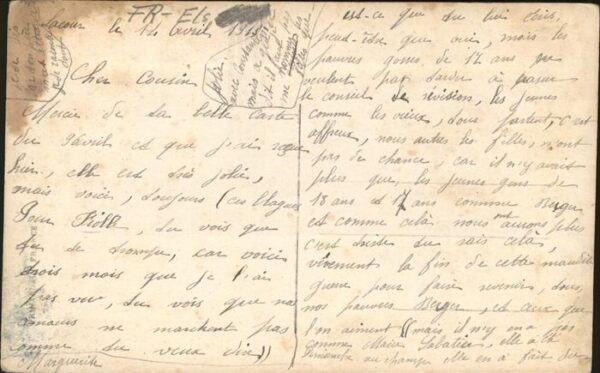 FR-Els
le 14 Avril 1915
Cher Cousin
Merci de ta belle carte
du 9 avril et que j'ai reçue
hier, elle est très jolie,
mais voici, toujours (ces blagues
Pour tu vois que
tu te trompe, car voici
trois mois que je l'ai
pas vu, tu vois que nos
amours ne marchent pas
comme tu veux dire))
Marguerite
Jolie
avec
mais
il faut
me
est-ce que tu lui écris,
peut-être que oui, mais les
pauvres gosses de 17 ans ne
veulent pas tarder à passer
le conseil de révision, les jeunes
comme les vieux, tous partent, c'est
affreux, nous autres les filles, n'ont
pas de chance, car il n'y avait
plus que les jeunes gens de
18 ans et 17 ans comme Berger
et comme cela nous ont aurons plus
c'est triste tu sais cela,
vivement la fin de cette maudite
guerre pour faire revenir, tous,
nos pauvres Berger, et ceux que
l'on aiment ((mais il n'y en a pas
comme Marie Sabatier, elle a
au change elle en a fait du